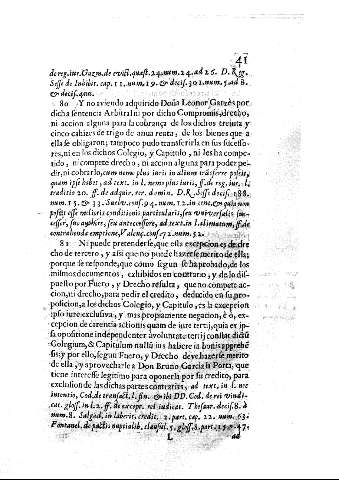 41
de reg. iur. Guzm. de evict. quæst. 24. num. 24. ad 26. D. Reg.
Sesse de Inhibit. cap. 11. num. 19. & decis. 301. num. 5. ad 8.
& decis. 400.
80 Y no aviendo adquirido Doña Leonor Garcés por
dicha sentencia Arbitral ni por dicho Compromis, drecho,
ni accion alguna para la cobrança de los dichos treinta y
cinco cahizes de trigo de anua renta, de los bienes que a
ella se obligaron; tampoco pudo transferirla en sus sucesso-
res, ni en los dichos Colegio, y Capitulo, ni les ha compe-
tido, ni compete drecho, ni accion alguna para poder pe-
dir, ni cobrarlo, cum nemo plus iuris in alium trasferre possit,
quam ipse habet, ad text. in l. nemo plus iuris, ff. de reg. iur. l.
traditio 20. ff. de adquir. rer. domin. D. R. Sesse decis. 188.
num. 15. & 33. Suelves conf. 94. num. 12. in cent. & quia non
possit esse melioris conditionis particularis, seu universalis suc-
cessor, suo auctore, seu antecessore, ad text. in l. alienatum, ff. de
contrahenda emptione, Valenç. cons. 72. num. 52.
81 Ni puede pretenderse, que esta excepcion es de dre
cho de tercero, y assi que no puede hazerse merito de ella;
porque se responde, que como segun se ha probado, de los
mismos documentos, exhibidos en contrario, y de lo dis-
puesto por Fuero, y Drecho resulta, que no compete ac-
cion, ni drecho, para pedir el credito, deducido en su pro-
posicion, a los dichos Colegio, y Capitulo, es la excepcion
ipso iure exclusiva, y mas propiamente negacion, è ò, ex-
cepcion de carencia actionis quam de iure tertij, quia es ip-
sa opositione independenter à voluntate tertij constat dictũ
Colegium, & Capitulum nullũ ius habere in bonis apprehē
sis; y por ello, segun Fuero, y Drecho deve hazerse merito
de ella, y aprovecharle a Don Bruno Garcia la Porta, que
tiene interesse legitimo para oponerla por su credito, para
exclusion de las dichas partes contrarias, ad text. in l. ute
intentio, Cod. de transact. l. fin. & ibi DD. Cod. de rei vindi-
cat. gloss. in l. 2. ff. de except. rei iudicat. Thesaur. decis. 8. à
num. 8. Salgad. in laberit. credit. 2. part. cap. 22. num. 63.
Fontanel. de pactis nuptialib. clausul. 5. gloss. 8. part. 15. n. 47.
L ad